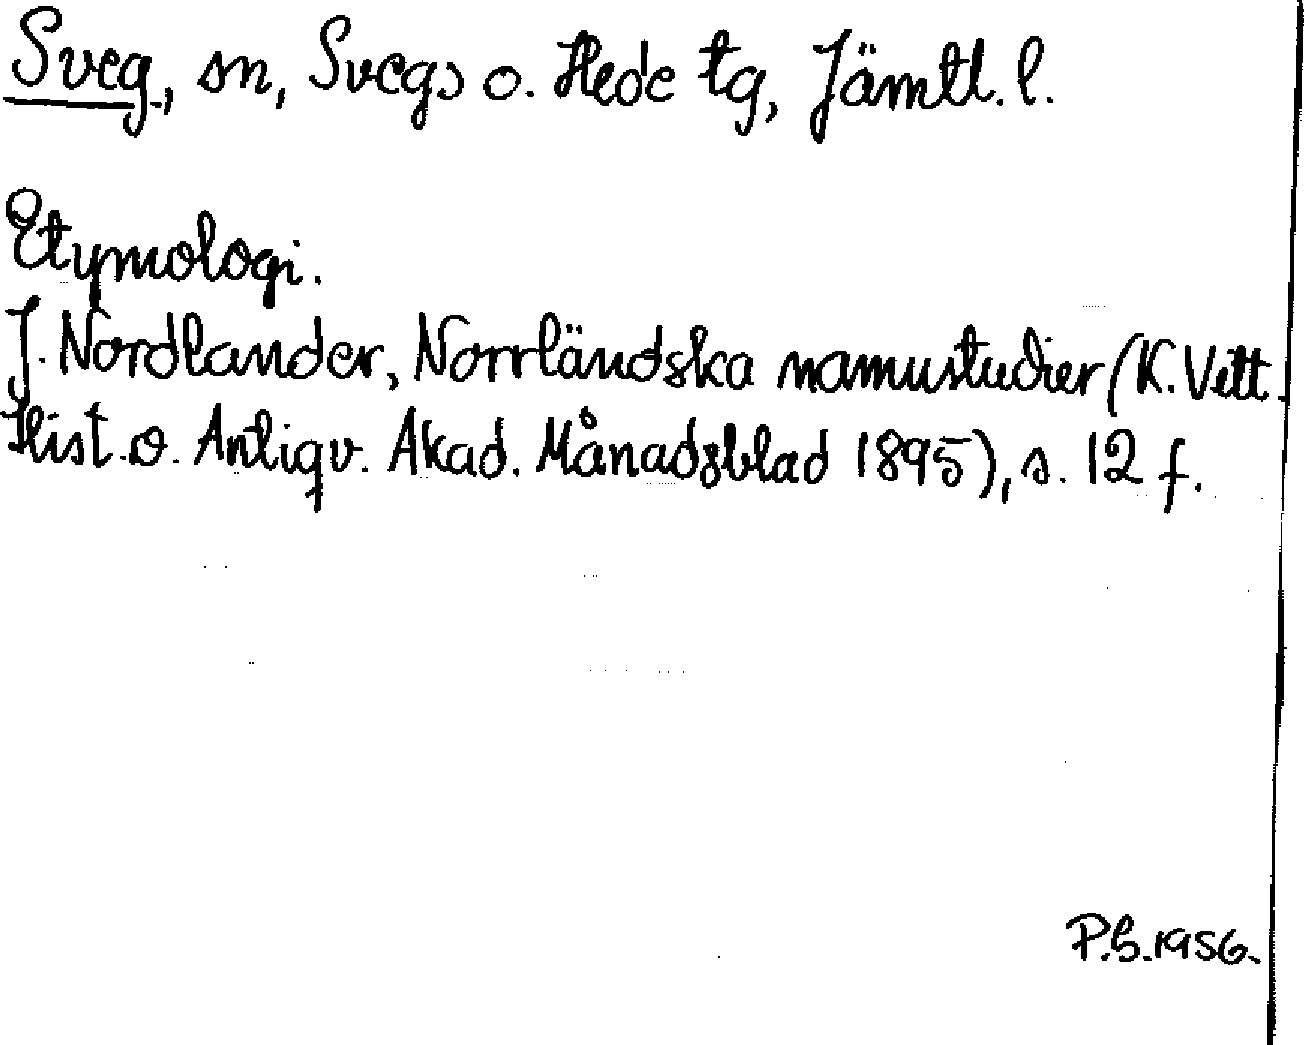 Sveg, sn, Svegs o. Hede tg, Jämtl. l.
Etymologi.
J. Nordlander, Norrländska namnstudier (K. Vitt.
Hist. o. Antiqv. Akad. Månadsblad 1895), s. 12 f.
P.S. 1956.